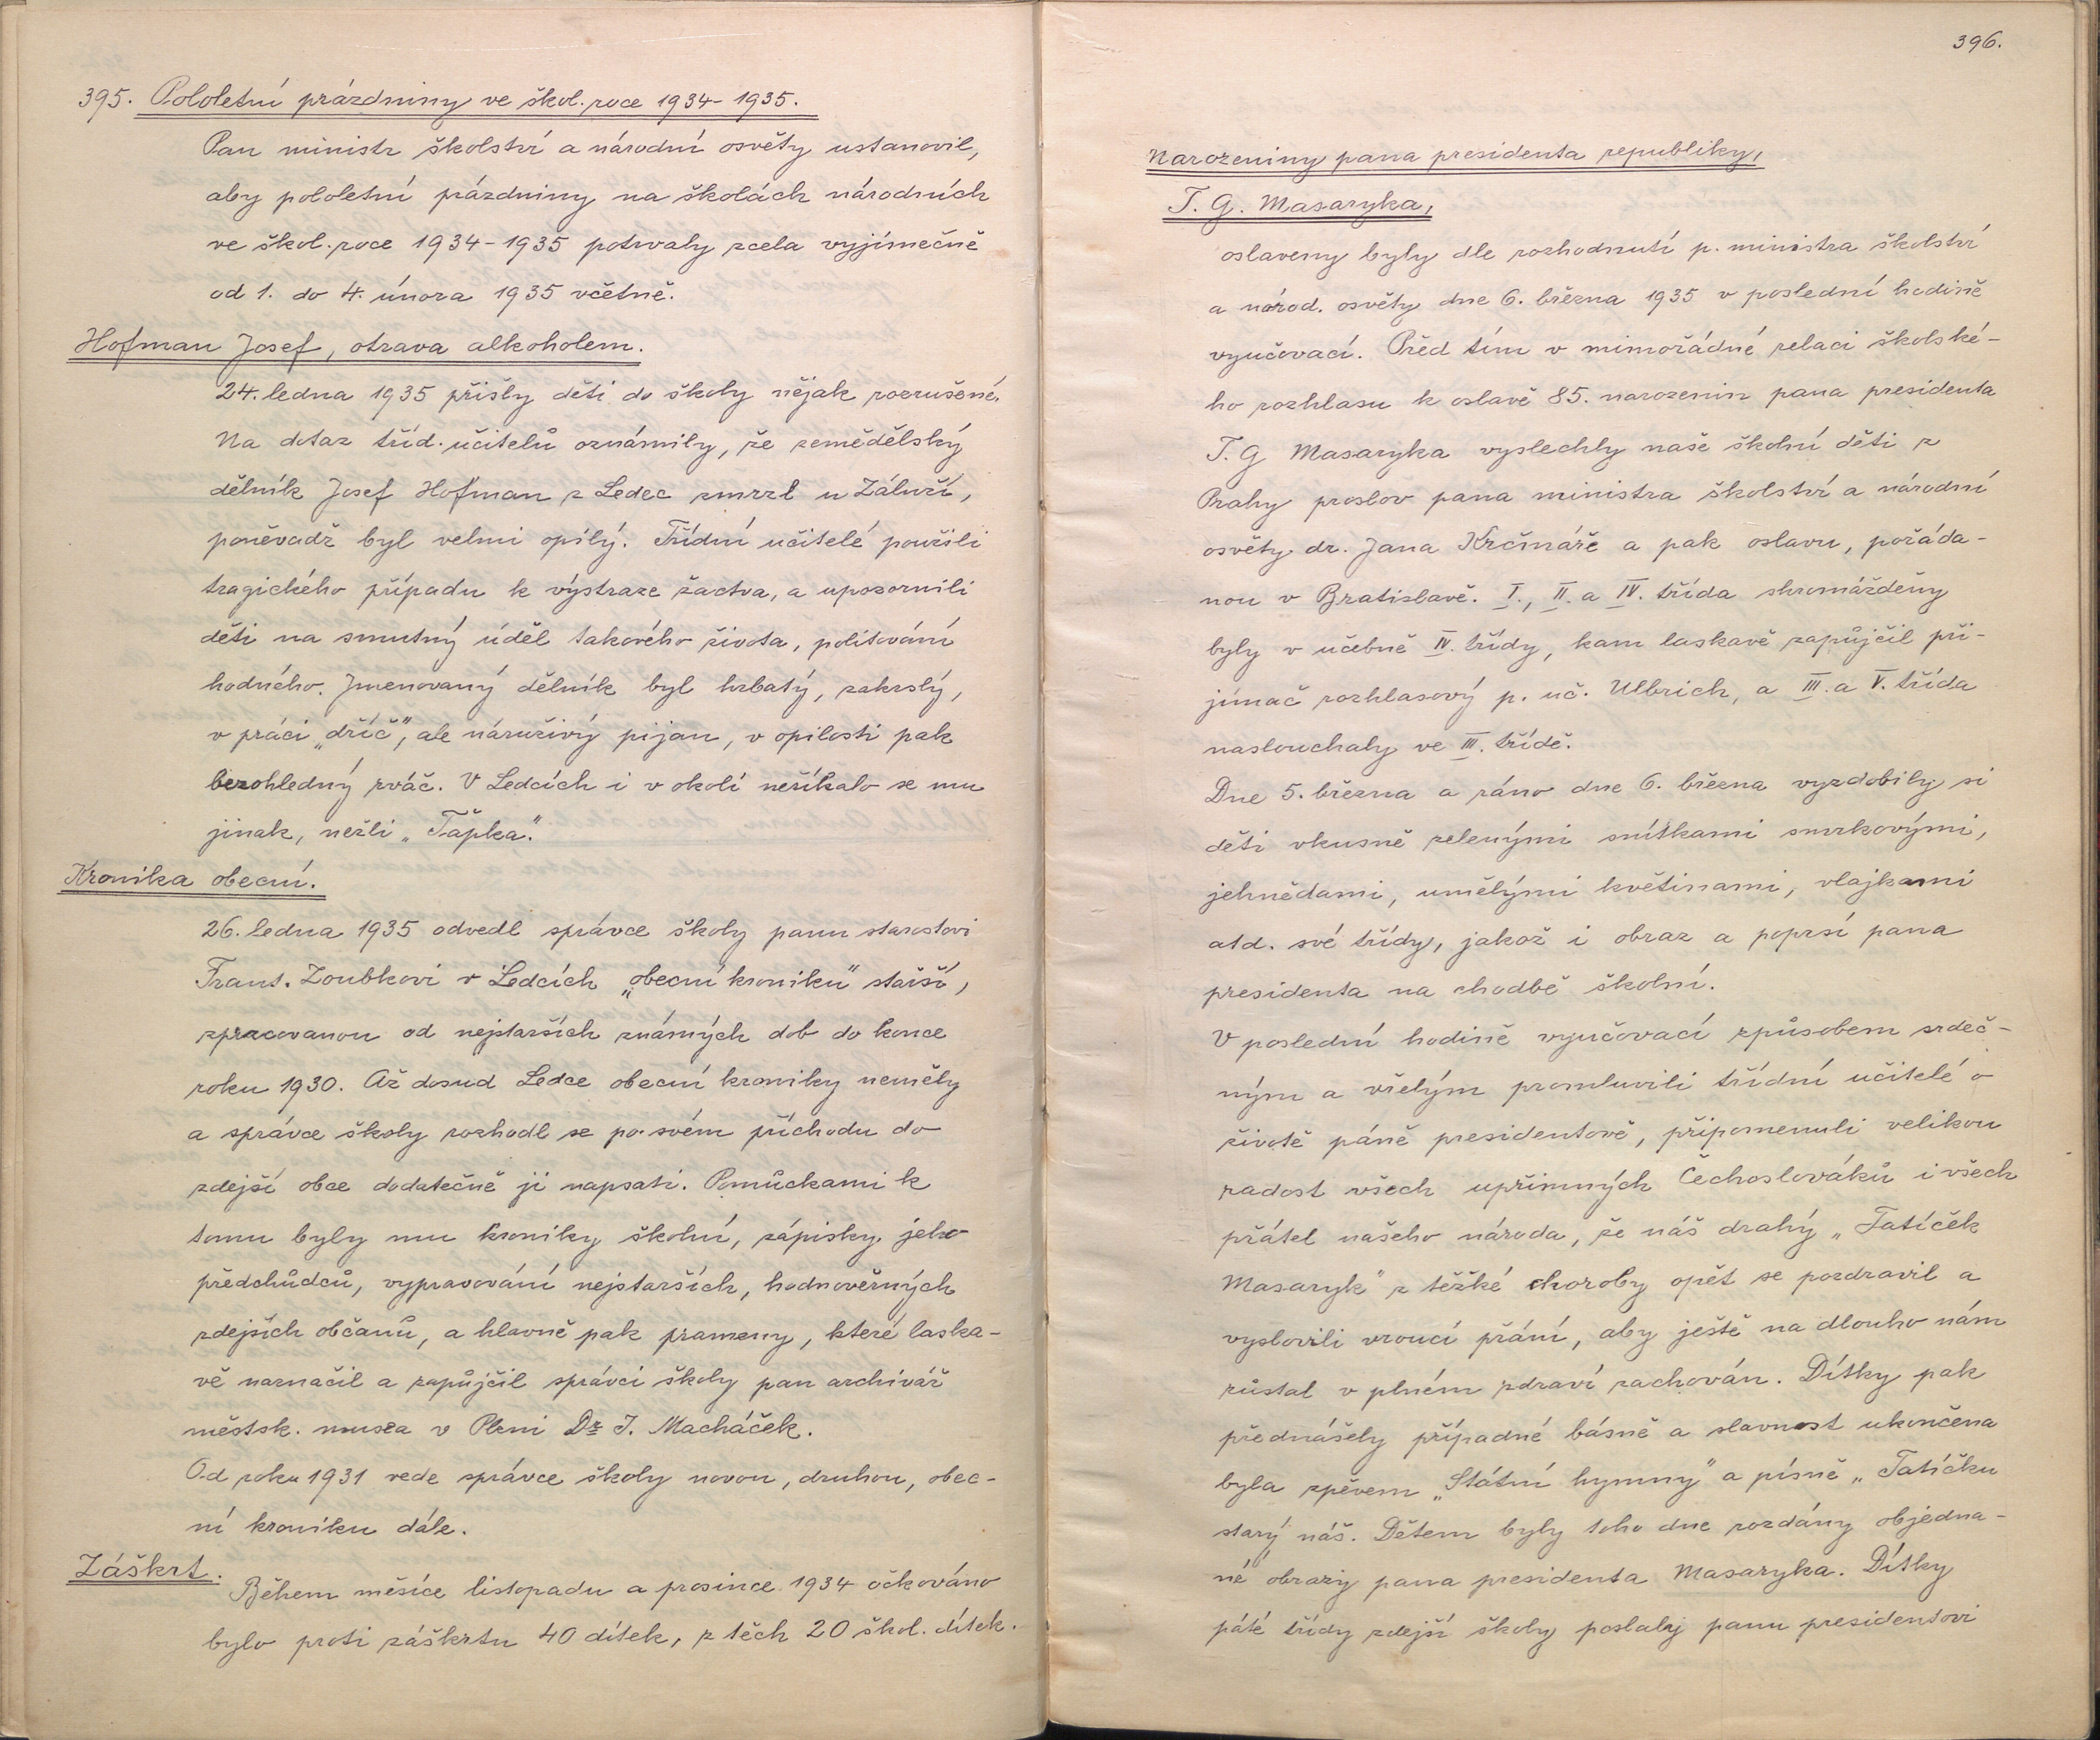 395. Pololetní prázdniny ve škol. roce 1934-1935.
Pan ministr školství a národní osvěty ustanovil,
aby pololetní prázdniny na školách národních
ve škol. roce 1934-1935 potrvaly zcela vyjímečně
od 1. do 4. února 1935 včetně.
Hofman Josef, otrava alkoholem.
24. ledna 1935 přišly děti do školy nějak rozrušené.
Na dotaz tříd. učitelů oznámily, že zemědělský
dělník Josef Hofman z Ledec zmrzl u Záluží,
poněvadž byl velmi opilý. Třídní učitelé použili
tragického případu k výstraze žactva, a upozornili
děti na smutný úděl takového života, politování
hodného. Jmenovaný dělník byl hrbatý, zakrslý,
v práci „dříč", ale náruživý pijan, v opilosti pak
bezohledný rváč. V Ledcích i v okolí neříkalo se mu
jinak, nežli „Ťapka".
Kronika obecní.
26. ledna 1935 odvedl správce školy panu starostovi
Frant. Zoubkovi v Ledcích „obecní kroniku" starší,
zpracovanou od nejstarších známých dob do konce
roku 1930. Až dosud Ledce obecní kroniky neměly
a správce školy rozhodl se po svém příchodu do
zdejší obce dodatečně ji napsati. Pomůckami k
tomu byly mu kroniky školní, zápisky jeho
předchůdců, vypravování nejstarších, hodnověrných
zdejších občanů, a hlavně pak prameny, které laska-
vě naznačil a zapůjčil správci školy pan archivář
městsk. musea v Plzni Dr J. Macháček.
Od roku 1931 vede správce školy novou, druhou, obec-
ní kroniku dále.
Záškrt.
Během měsíce listopadu a prosince 1934 očkováno
bylo proti záškrtu 40 dítek, z těch 20 škol. dítek.
396.
Narozeniny pana presidenta republiky,
T. G. Masaryka,
oslaveny byly dle rozhodnutí p. ministra školství
a národ. osvěty dne 6. března 1935 v poslední hodině
vyučovací. Před tím v mimořádné relaci školské-
ho rozhlasu k oslavě 85. narozenin pana presidenta
T. G Masaryka vyslechly naše školní děti z
Prahy proslov pana ministra školství a národní
osvěty dr. Jana Krčmáře a pak oslavu, pořáda-
nou v Bratislavě. I., II. a IV. třída shromážděny
byly v učebně IV. třídy, kam laskavě zapůjčil při-
jímač rozhlasový p. uč. Ulbrich, a III. a V. třída
naslouchaly ve III. třídě.
Dne 5. března a ráno dne 6. března vyzdobily si
děti vkusně zelenými snítkami smrkovými,
jehnědami, umělými květinami, vlajkami
atd. své třídy, jakož i obraz a poprsí pana
presidenta na chodbě školní.
V poslední hodině vyučovací způsobem srdeč-
ným a vřelým promluvili třídní učitelé o
životě páně presidentově, připomenuli velikou
radost všech upřimných Čechoslováků i všech
přátel našeho národa, že náš drahý „Tatíček
Masaryk" z těžké choroby opět se pozdravil a
vyslovili vroucí přání, aby ještě na dlouho nám
zůstal v plném zdraví zachován. Dítky pak
přednášely případné básně a slavnost ukončena
byla zpěvem „Státní hymny" a písně „Tatíčku
starý náš. Dětem byly toho dne rozdány objedna-
né obrazy pana presidenta Masaryka. Dítky
páté třídy zdejší školy poslaly panu presidentovi